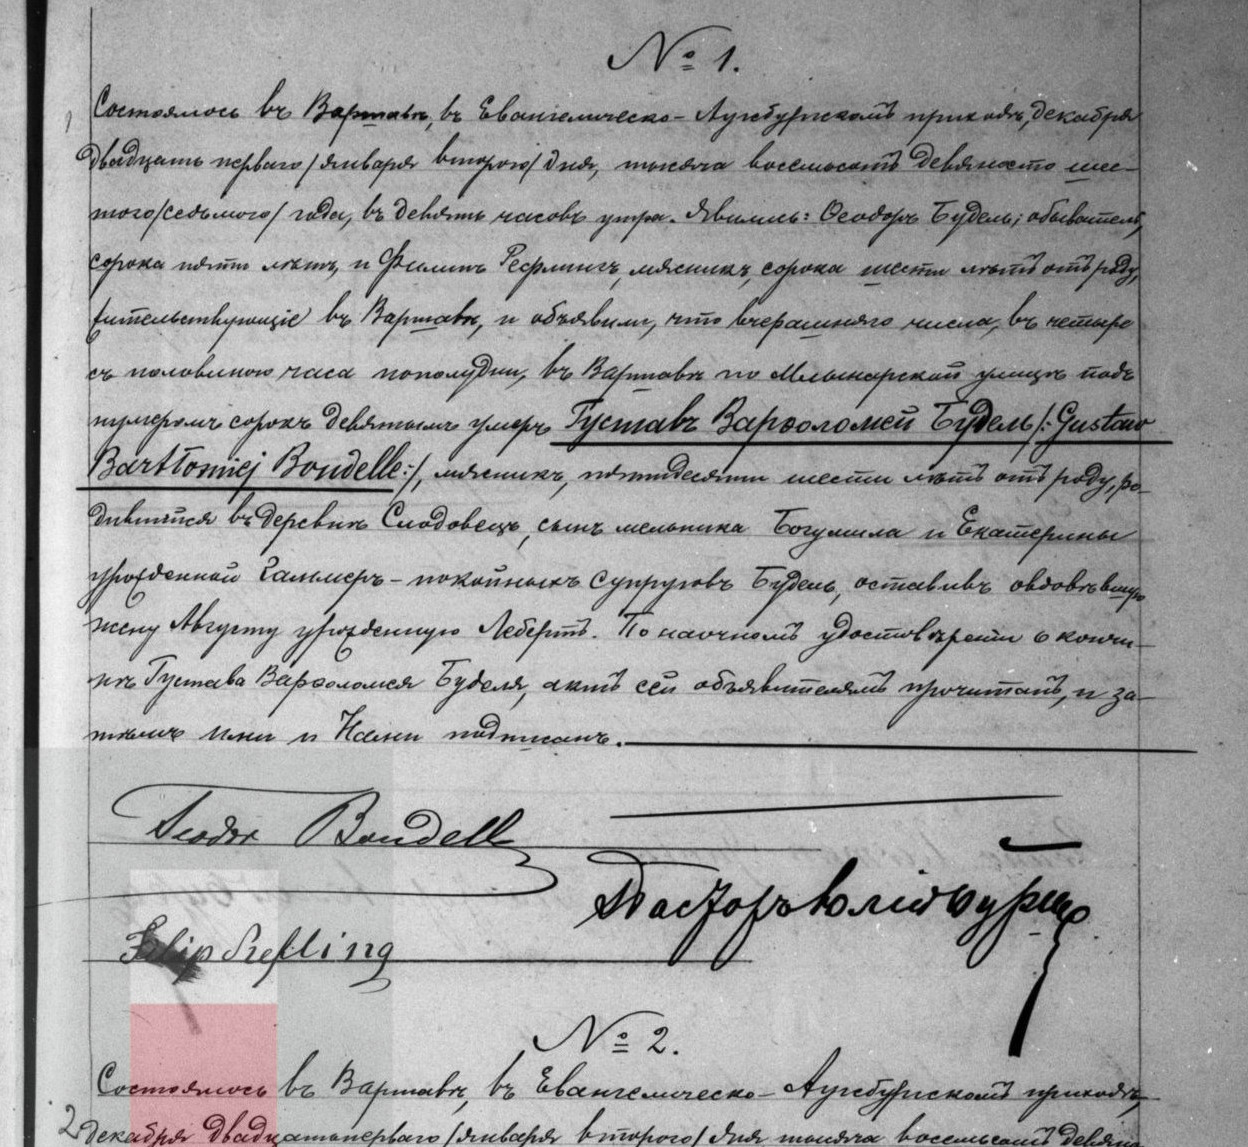 № 1.
1 Состоялось въ Варшавѣ, въ Евангелическо-Аугсбургскомъ приходѣ, декабря
двадцать перваго /января втораго/ дня, тысяча восемьсотъ девяносто шес-
того /седьмого/ года, въ девять часовъ утра. Явились: Ѳеодоръ Будель, обыватель,
сорока пяти лѣтъ, и Филипъ Рефлингъ, мясникъ, сорока шести лѣтъ отъ роду,
жительствующіе въ Варшавѣ, и объявили, что вчерашняго числа, въ четыре
съ половиною часа пополудни, въ Варшавѣ по Млынарской улицѣ подъ
нумеромъ сорокъ девятымъ умеръ Густавъ Варѳоломей Будель /:Gustaw
Bartłomiej Boudelle:/, мясникъ, пятидесяти шести лѣтъ отъ роду, ро-
дившійся въ деревнѣ Слодовецъ, сынъ мельника Богумила и Екатерины
урожденной Гальмеръ - покойныхъ супруговъ Будель, оставивъ овдовѣвшую
жену Августу урожденную Лебертъ. По наочномъ удостовѣреніи о кончи-
нѣ Густава Варѳоломея Буделя, актъ сей объявителямъ прочитанъ, и за-
тѣмъ ими и Нами подписанъ.
Teodor Boudell
Пасторъ Юлій Буршe
Filip Refling
№ 2.
Состоялось въ Варшавѣ, въ Евангелическо-Аугсбургскомъ приходѣ,
2 декабря двадцать перваго /января втораго/ дня тысяча восемьсотъ девяно